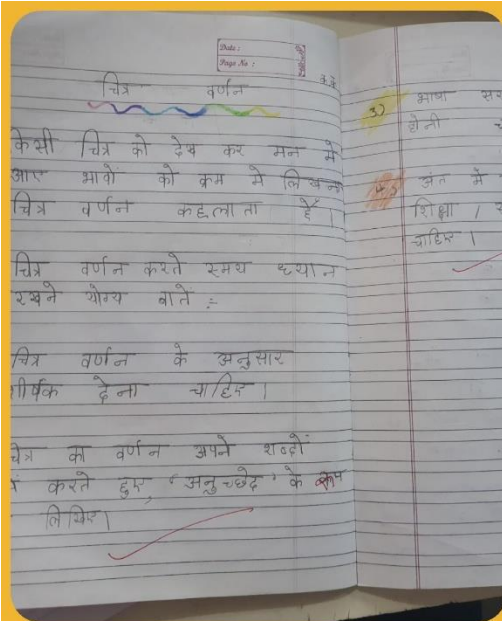 Date :
Page No :
चित्र वर्णन
किसी चित्र को देख कर मन में
आए भावों को क्रम में लिखना
चित्र वर्णन कहलाता है।
चित्र वर्णन करते समय ध्यान
रखने योग्य बातें :-
चित्र वर्णन के अनुसार
शीर्षक देना चाहिए।
चित्र का वर्णन अपने शब्दों
में करते हुए, 'अनुच्छेद' के रूप
लिखिए।
3) भाषा
होनी
4) अंत में
शिक्षा /
चाहिए।